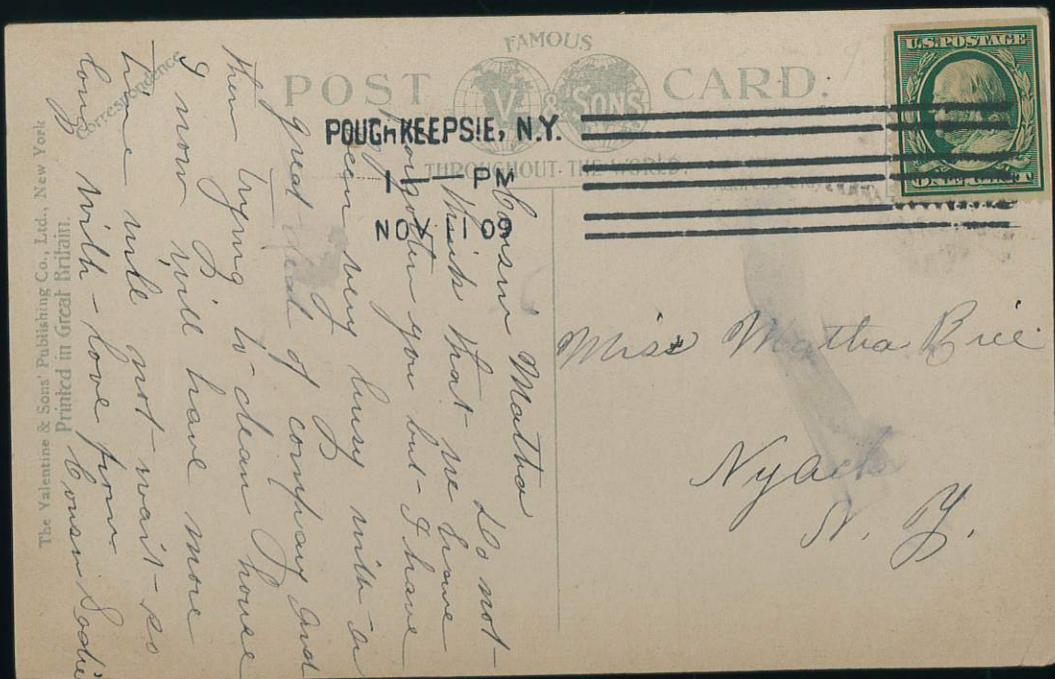 FAMOUS
POST CARD.
V & SONS
THROUGHOUT THE WORLD.
U.S. POSTAGE
ONE CENT
POUGHKEEPSIE, N.Y.
PM
NOV 1 09
Correspondence
The Valentine & Sons' Publishing Co., Ltd., New York
Printed in Great Britain.
Cousin Matha
Do not
think that we have
forgotten you but I have
been very busy with a
great deal of company and
then trying to clean house
I now will have more
time will not wait so
long with love from
Cousin Sadie
Miss Matha
Nyack
N. Y.